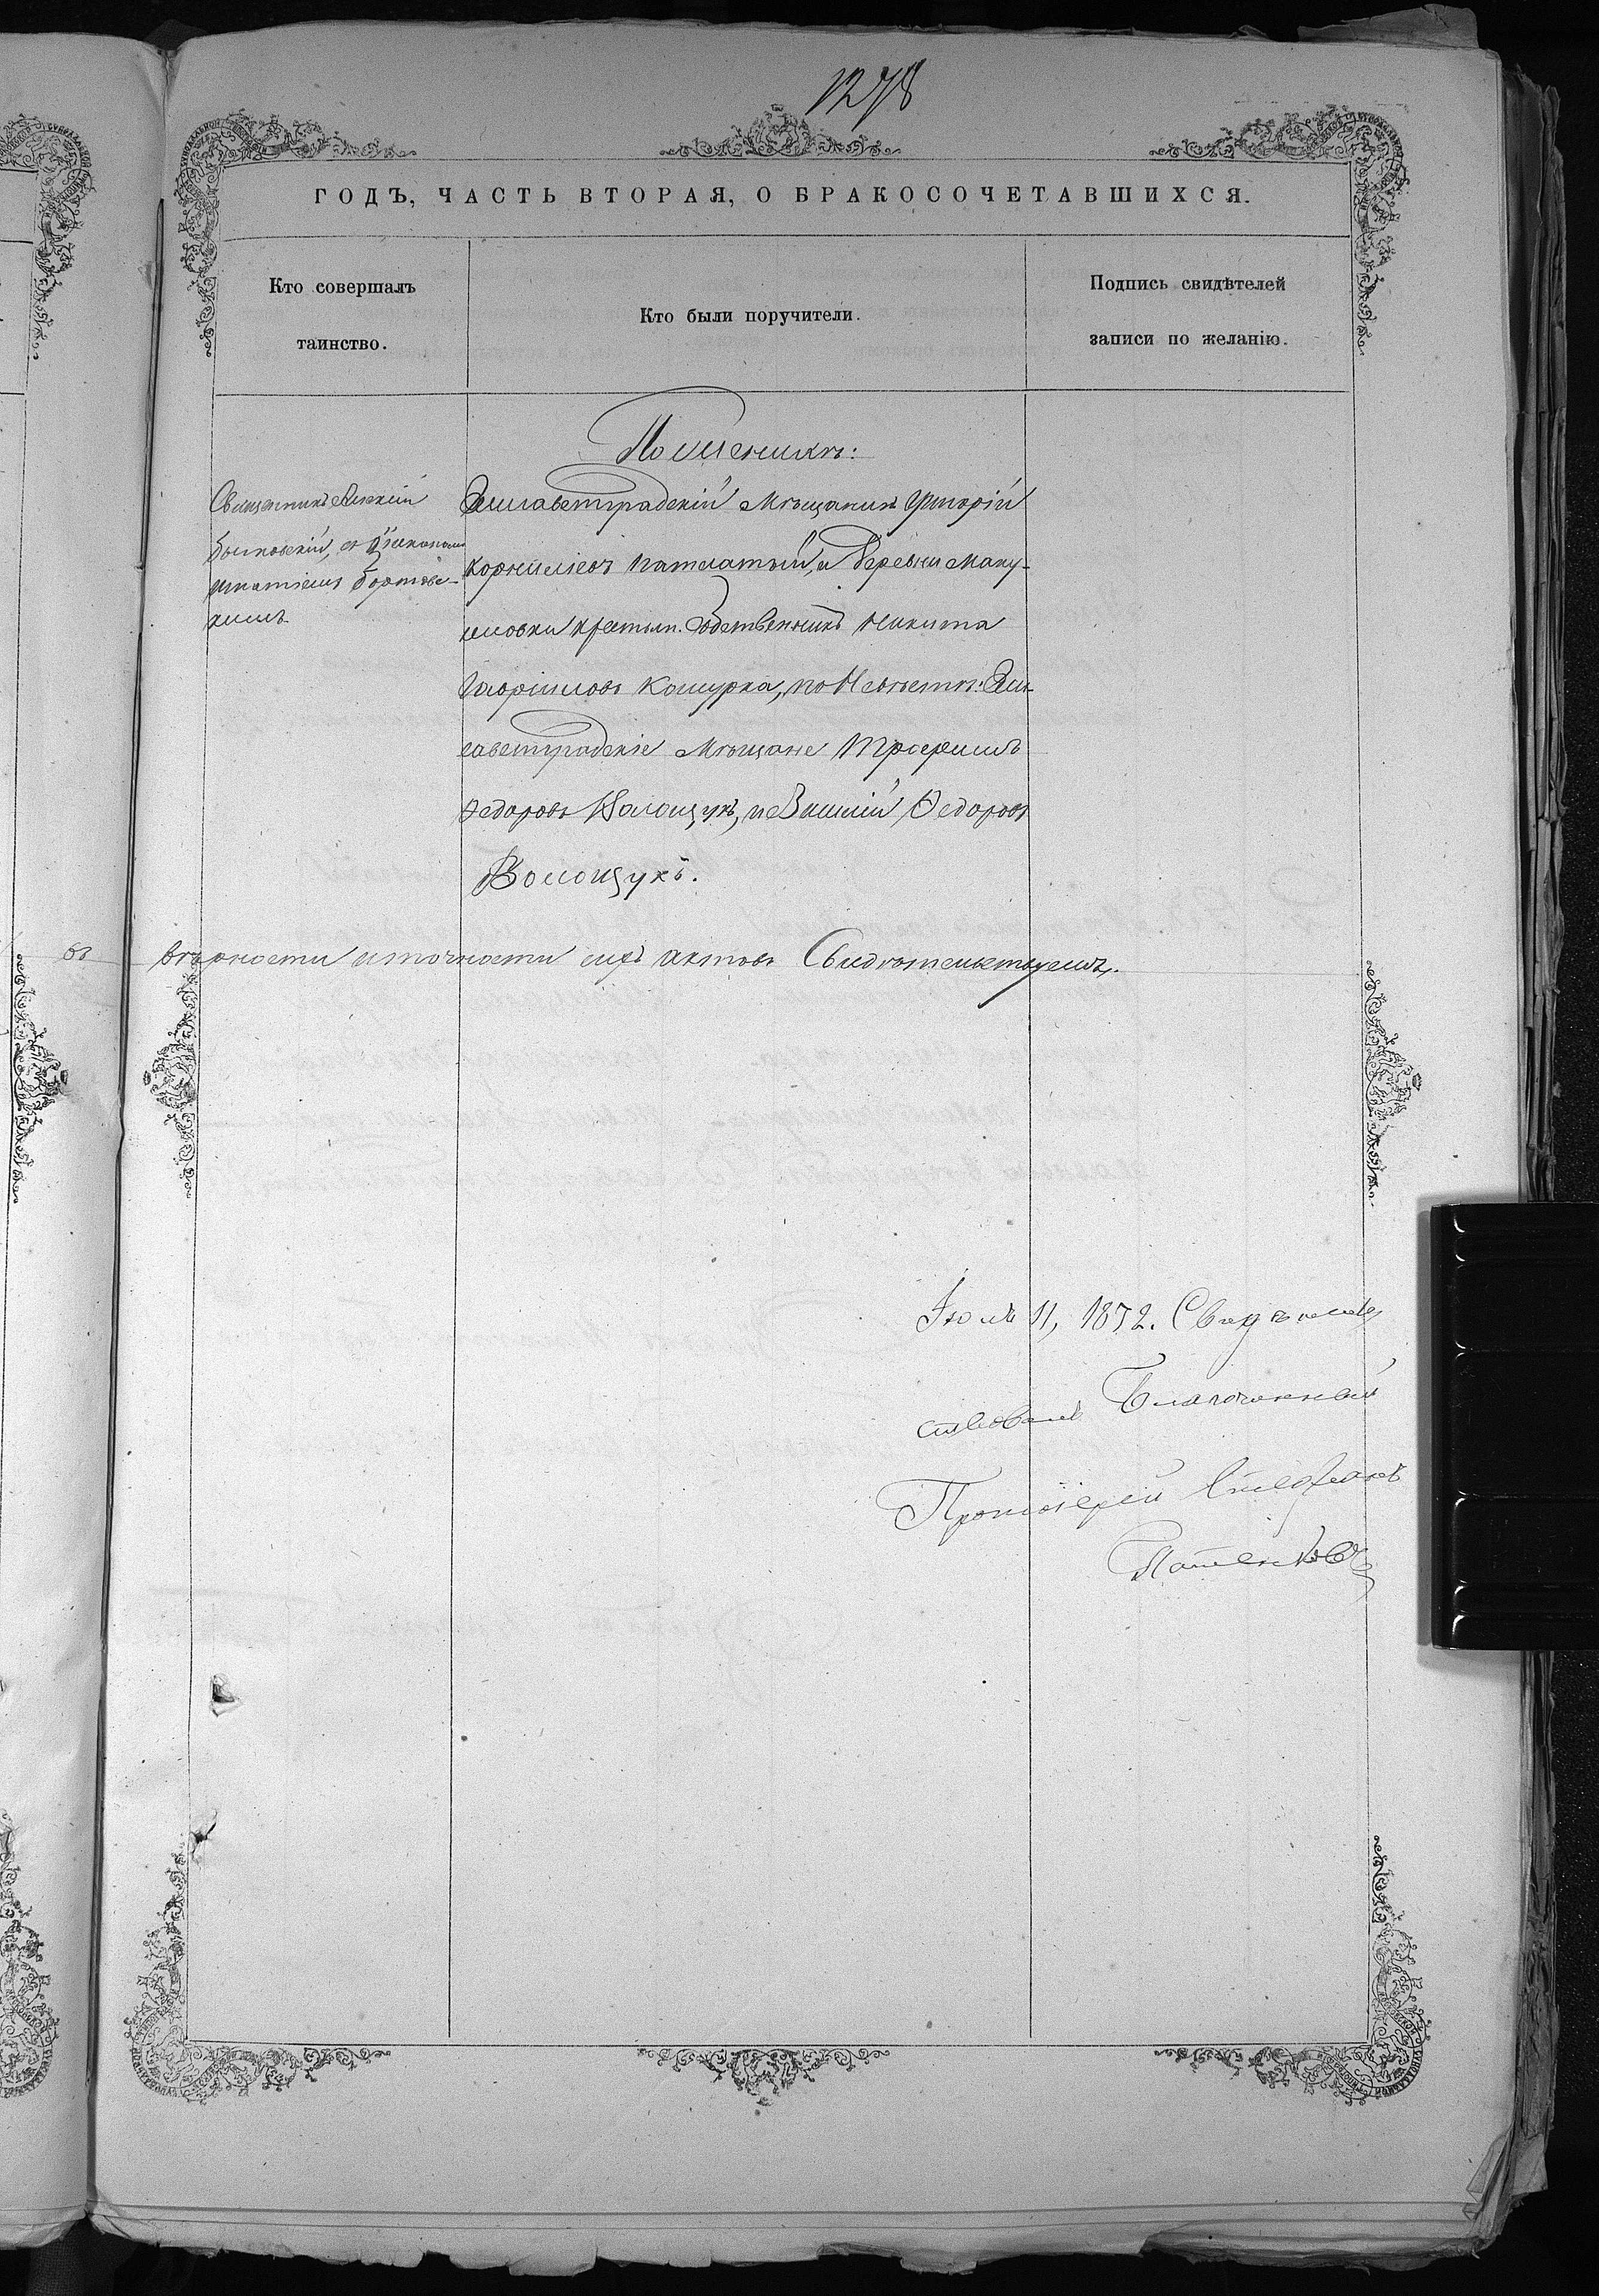 1278
ГОДЪ, ЧАСТЬ ВТОРАЯ, О БРАКОСОЧЕТАВШИХСЯ.
Кто совершалъ
таинство.
Кто были поручители.
Подпись свидѣтелей
записи по желанію.
По женихѣ:
Священникъ Алексій
съ
Елисаветградскій Мѣщанинъ Григорій
Корниліевъ и деревни Ману-
иловки крестьян. Собственникъ Никита
Гавриловъ Кошурка, по Невѣстѣ: Ели-
саветградскіе Мѣщане Трофимъ
Федоровъ Волощукъ, и Василій Федоровъ
Волощукъ.
Въ вѣрности и точности сихъ актовъ Свидѣтельствуемъ.
Іюль 11, 1872. Свидѣтель
ствовалъ Благочинный
Протоіерей Стефанъ